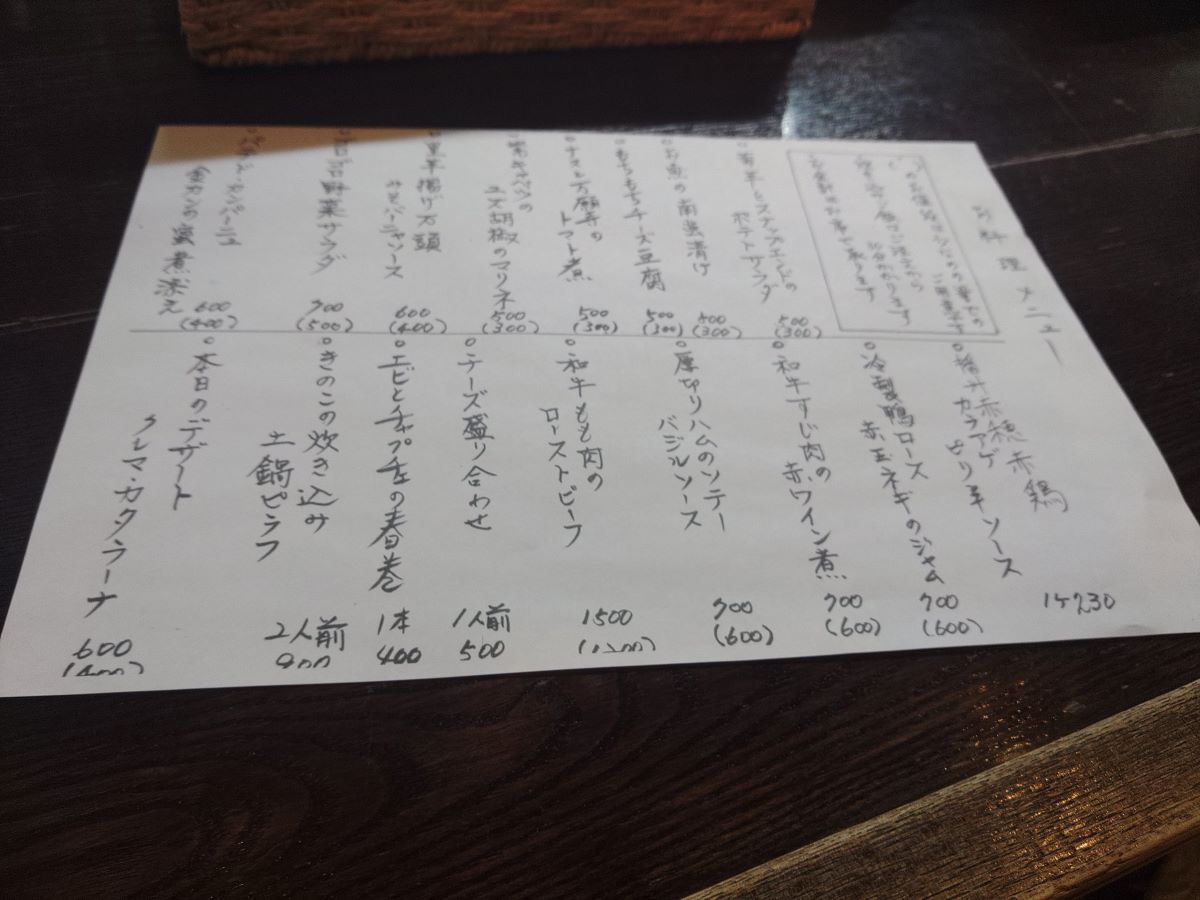 お料理メニュー
ポテトサラダ
500
(300)
お魚の南蛮漬け
500
(300)
もちもちチーズ豆腐
500
(300)
ナスと万願寺の
トマト煮
500
(300)
ユズ胡椒のマリネ
500
(300)
里芋揚げ万頭
600
(400)
ゴロゴロ野菜サラダ
700
(500)
金カンの蜜煮添え
600
(400)
播州赤穂赤鶏
カラアゲ ピリ辛ソース
1ケ230
冷製鴨ロース
赤玉ネギのジャム
700
(600)
和牛すじ肉の
赤ワイン煮
700
(600)
厚切りハムのソテー
バジルソース
700
(600)
和牛もも肉の
ローストビーフ
1500
チーズ盛り合わせ
1人前
500
エビとチャプチェの春巻
1本
400
きのこの炊き込み
土鍋ピラフ
2人前
900
本日のデザート
クレマ・カタラーナ
600
(400)